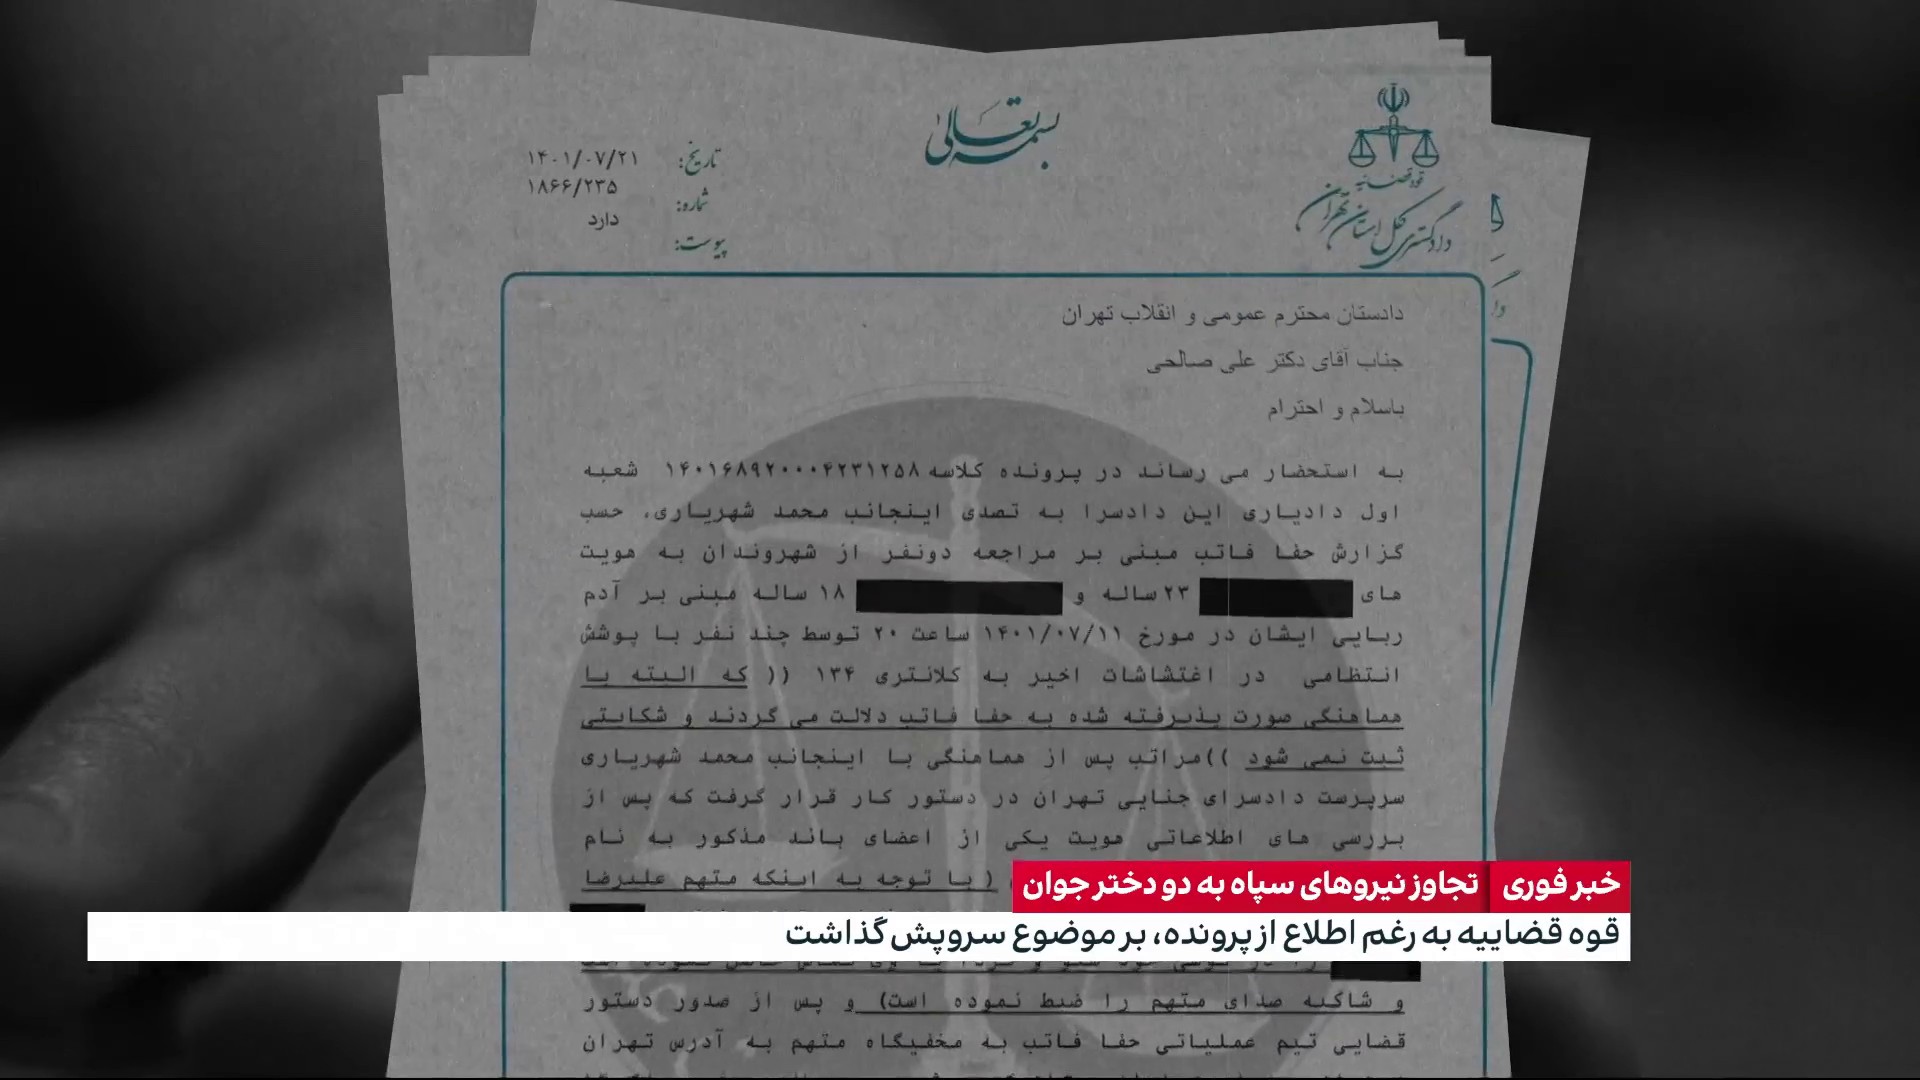 بسمه تعالی
قوه قضاییه
دادگستری کل استان تهران
تاریخ: ۱۴۰۱/۰۷/۲۱
شماره: ۱۸۶۶/۲۳۵
پیوست: دارد
دادستان محترم عمومی و انقلاب تهران
جناب آقای دکتر علی صالحی
باسلام و احترام
به استحضار می رساند در پرونده کلاسه ۱۴۰۱۶۸۹۲۰۰۰۴۲۳۱۲۵۸ شعبه
اول دادیاری این دادسرا به تصدی اینجانب محمد شهریاری، حسب
گزارش حفا فاتب مبنی بر مراجعه دونفر از شهروندان به هویت
های ۲۳ ساله و ۱۸ ساله مبنی بر آدم
ربایی ایشان در مورخ ۱۴۰۱/۰۷/۱۱ ساعت ۲۰ توسط چند نفر با پوشش
انتظامی در اغتشاشات اخیر به کلانتری ۱۳۴ (( که البته با
هماهنگی صورت پذیرفته شده به حفا فاتب دلالت می گردند و شکایتی
ثبت نمی شود ))مراتب پس از هماهنگی با اینجانب محمد شهریاری
سرپرست دادسرای جنایی تهران در دستور کار قرار گرفت که پس از
بررسی های اطلاعاتی هویت یکی از اعضای باند مذکور به نام
(با توجه به اینکه متهم علیرضا
خبر فوری تجاوز نیروهای سپاه به دو دختر جوان
قوه قضاییه به رغم اطلاع از پرونده، بر موضوع سرپوش گذاشت
و شاکیه صدای متهم را ضبط نموده است) و پس از صدور دستور
قضایی تیم عملیاتی حفا فاتب به مخفیگاه متهم به آدرس تهران